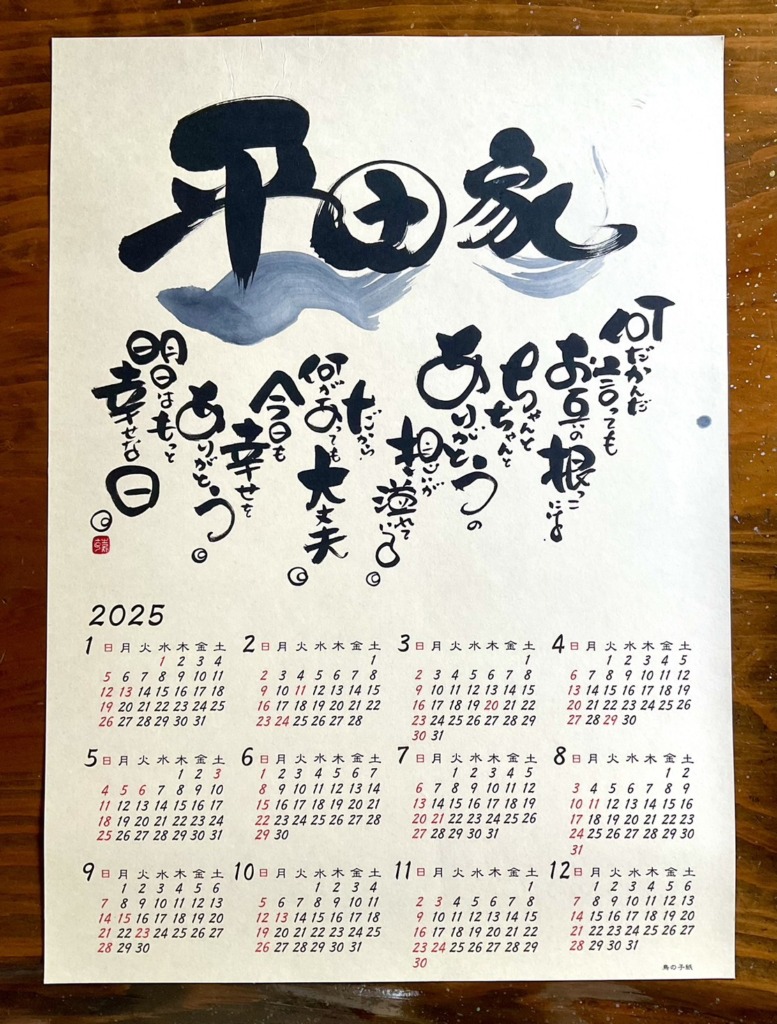 平田家
何だかんだ
言っても
お互いの
根っこには
ちゃんと
ちゃんと
ありがとうの
想いが
溢れている
だから
何があっても
大丈夫
今日も
幸せを
ありがとう
明日はもっと
幸せな
日
2025
1 日 月 火 水 木 金 土
1 2 3 4
5 6 7 8 9 10 11
12 13 14 15 16 17 18
19 20 21 22 23 24 25
26 27 28 29 30 31
2 日 月 火 水 木 金 土
1
2 3 4 5 6 7 8
9 10 11 12 13 14 15
16 17 18 19 20 21 22
23 24 25 26 27 28
3 日 月 火 水 木 金 土
1
2 3 4 5 6 7 8
9 10 11 12 13 14 15
16 17 18 19 20 21 22
23 24 25 26 27 28 29
30 31
4 日 月 火 水 木 金 土
1 2 3 4 5
6 7 8 9 10 11 12
13 14 15 16 17 18 19
20 21 22 23 24 25 26
27 28 29 30
5 日 月 火 水 木 金 土
1 2 3
4 5 6 7 8 9 10
11 12 13 14 15 16 17
18 19 20 21 22 23 24
25 26 27 28 29 30 31
6 日 月 火 水 木 金 土
1 2 3 4 5 6 7
8 9 10 11 12 13 14
15 16 17 18 19 20 21
22 23 24 25 26 27 28
29 30
7 日 月 火 水 木 金 土
1 2 3 4 5
6 7 8 9 10 11 12
13 14 15 16 17 18 19
20 21 22 23 24 25 26
27 28 29 30 31
8 日 月 火 水 木 金 土
1 2
3 4 5 6 7 8 9
10 11 12 13 14 15 16
17 18 19 20 21 22 23
24 25 26 27 28 29 30
31
9 日 月 火 水 木 金 土
1 2 3 4 5 6
7 8 9 10 11 12 13
14 15 16 17 18 19 20
21 22 23 24 25 26 27
28 29 30
10 日 月 火 水 木 金 土
1 2 3 4
5 6 7 8 9 10 11
12 13 14 15 16 17 18
19 20 21 22 23 24 25
26 27 28 29 30 31
11 日 月 火 水 木 金 土
1
2 3 4 5 6 7 8
9 10 11 12 13 14 15
16 17 18 19 20 21 22
23 24 25 26 27 28 29
30
12 日 月 火 水 木 金 土
1 2 3 4 5 6
7 8 9 10 11 12 13
14 15 16 17 18 19 20
21 22 23 24 25 26 27
28 29 30 31
鳥の子紙